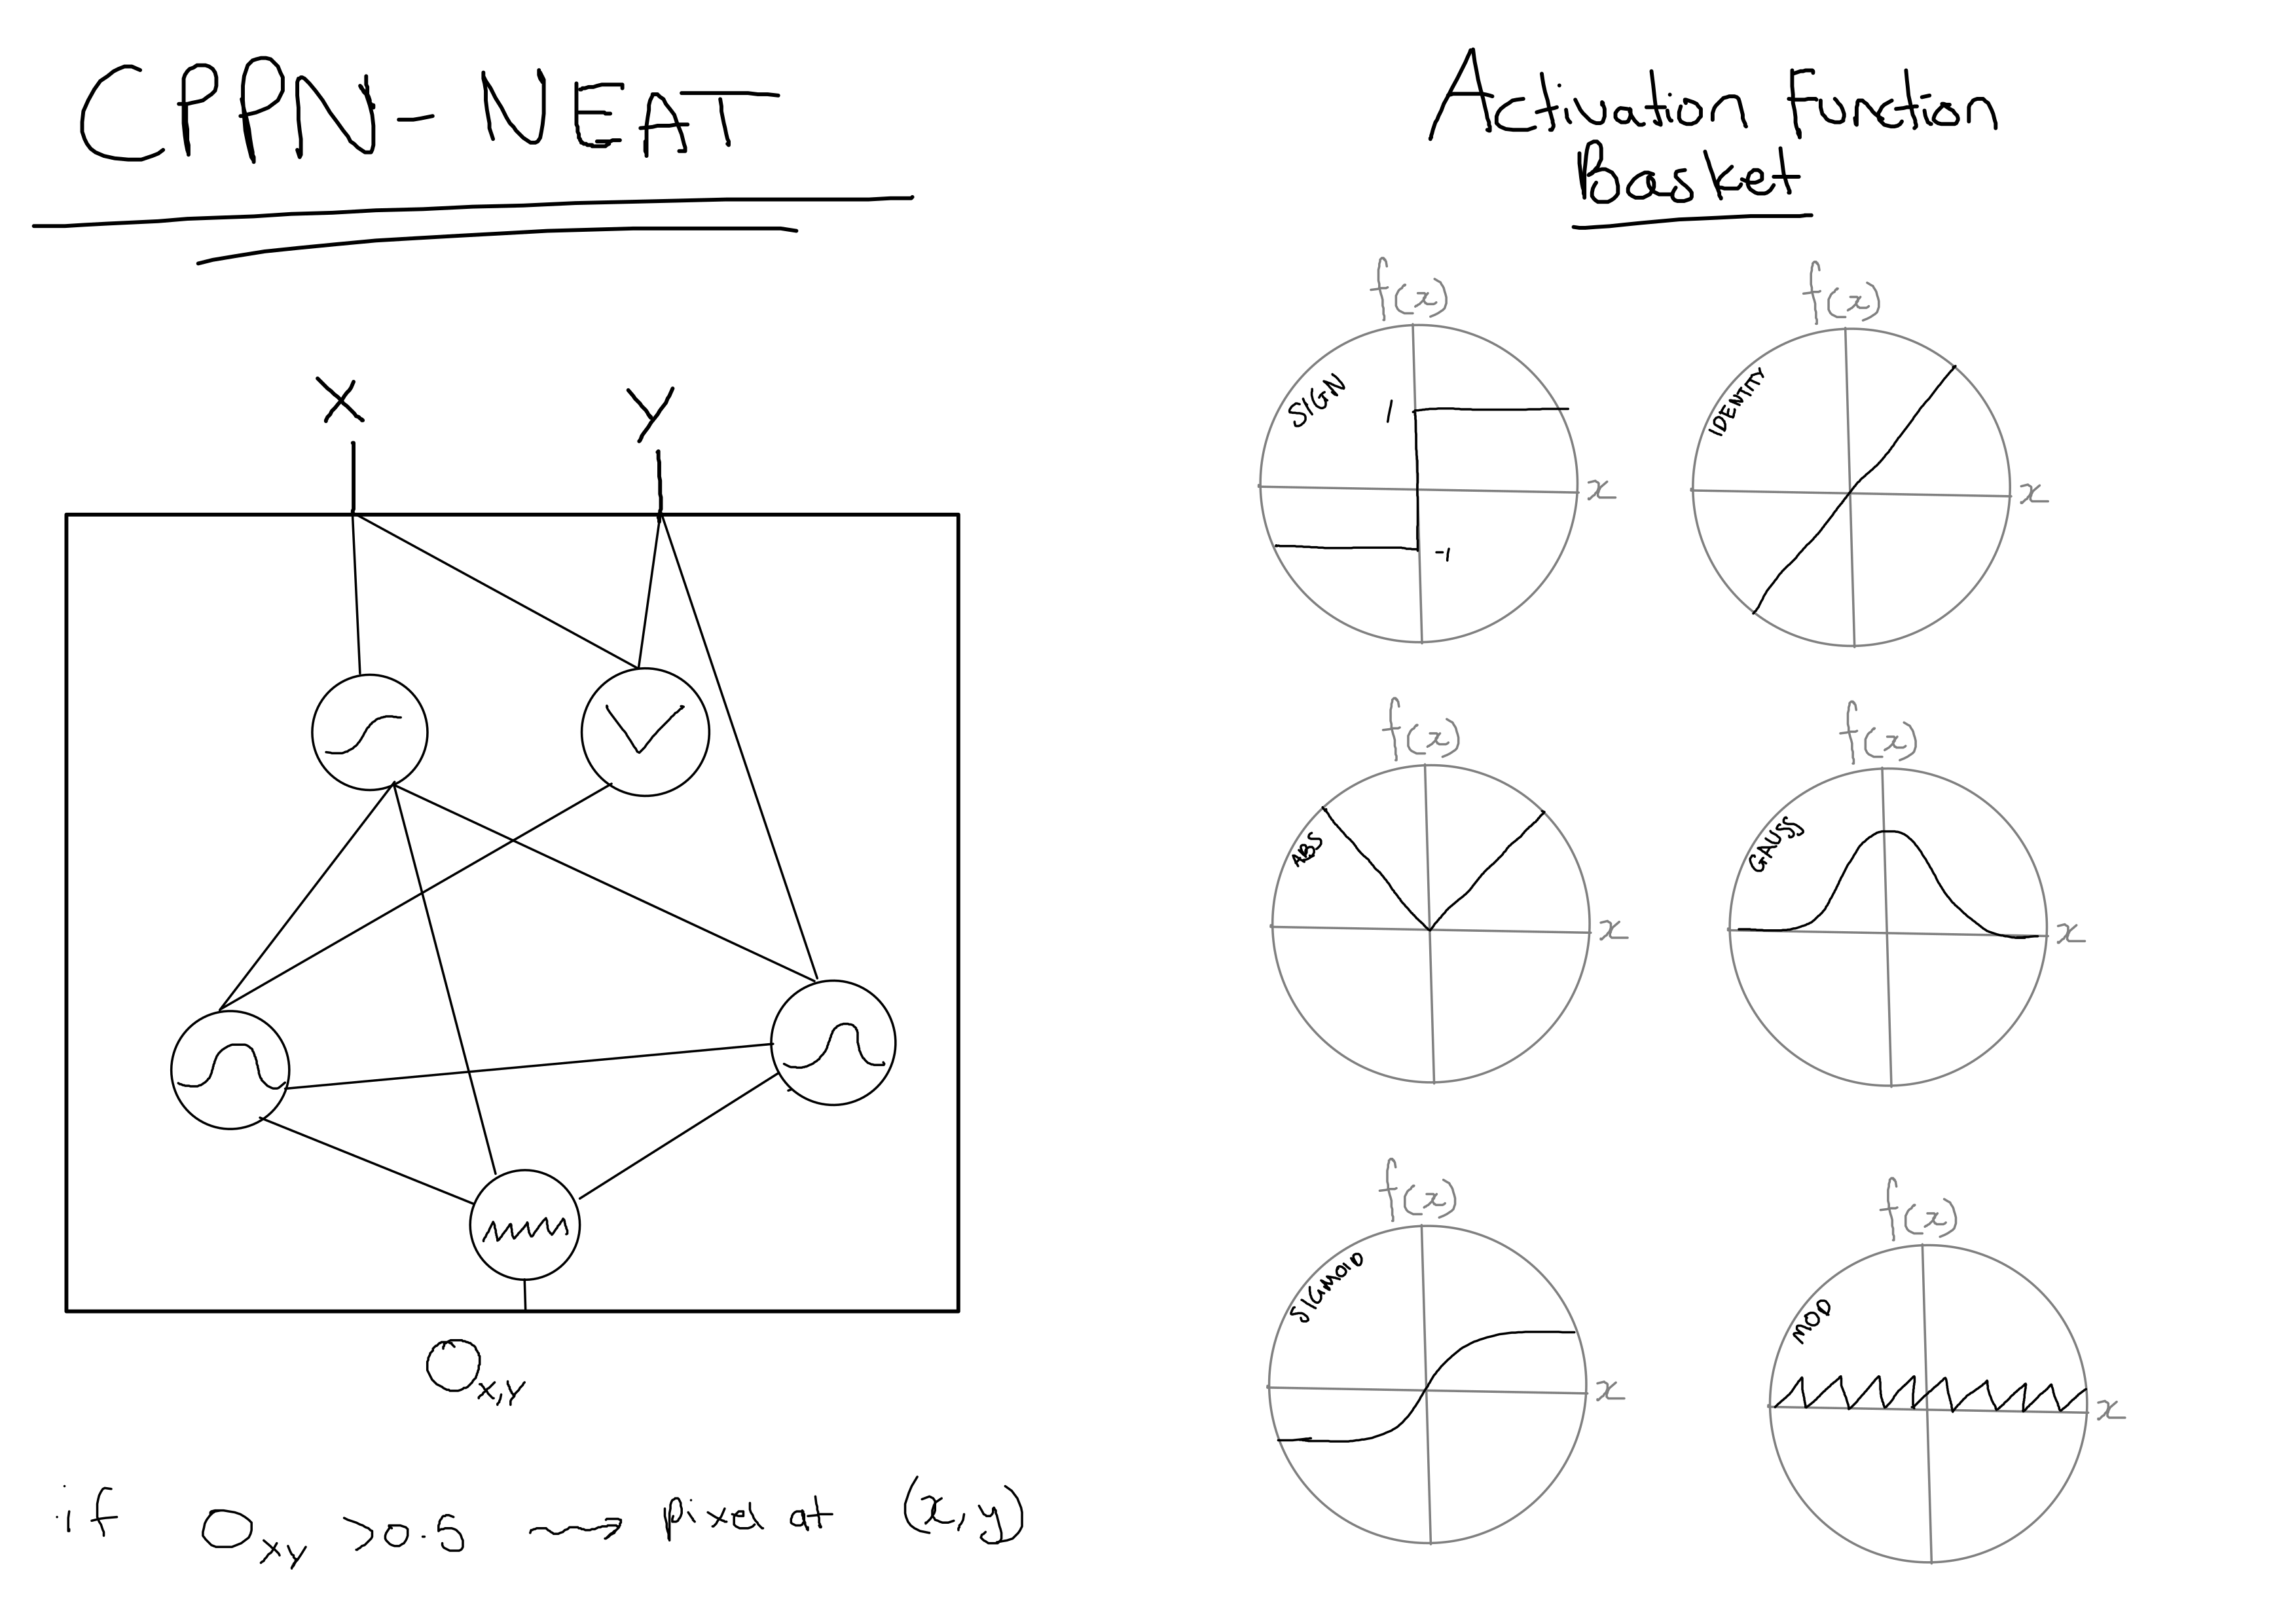 CPPN-NEAT
X
Y
O x,y
if O xy >0.5 ⟿ pixel at (x,y)
Activation Function
Basket
f(x)
SIGN
1
-1
x
f(x)
IDENTITY
x
f(x)
ABS
x
f(x)
GAUSS
x
f(x)
SIGMOID
x
f(x)
MOD
x